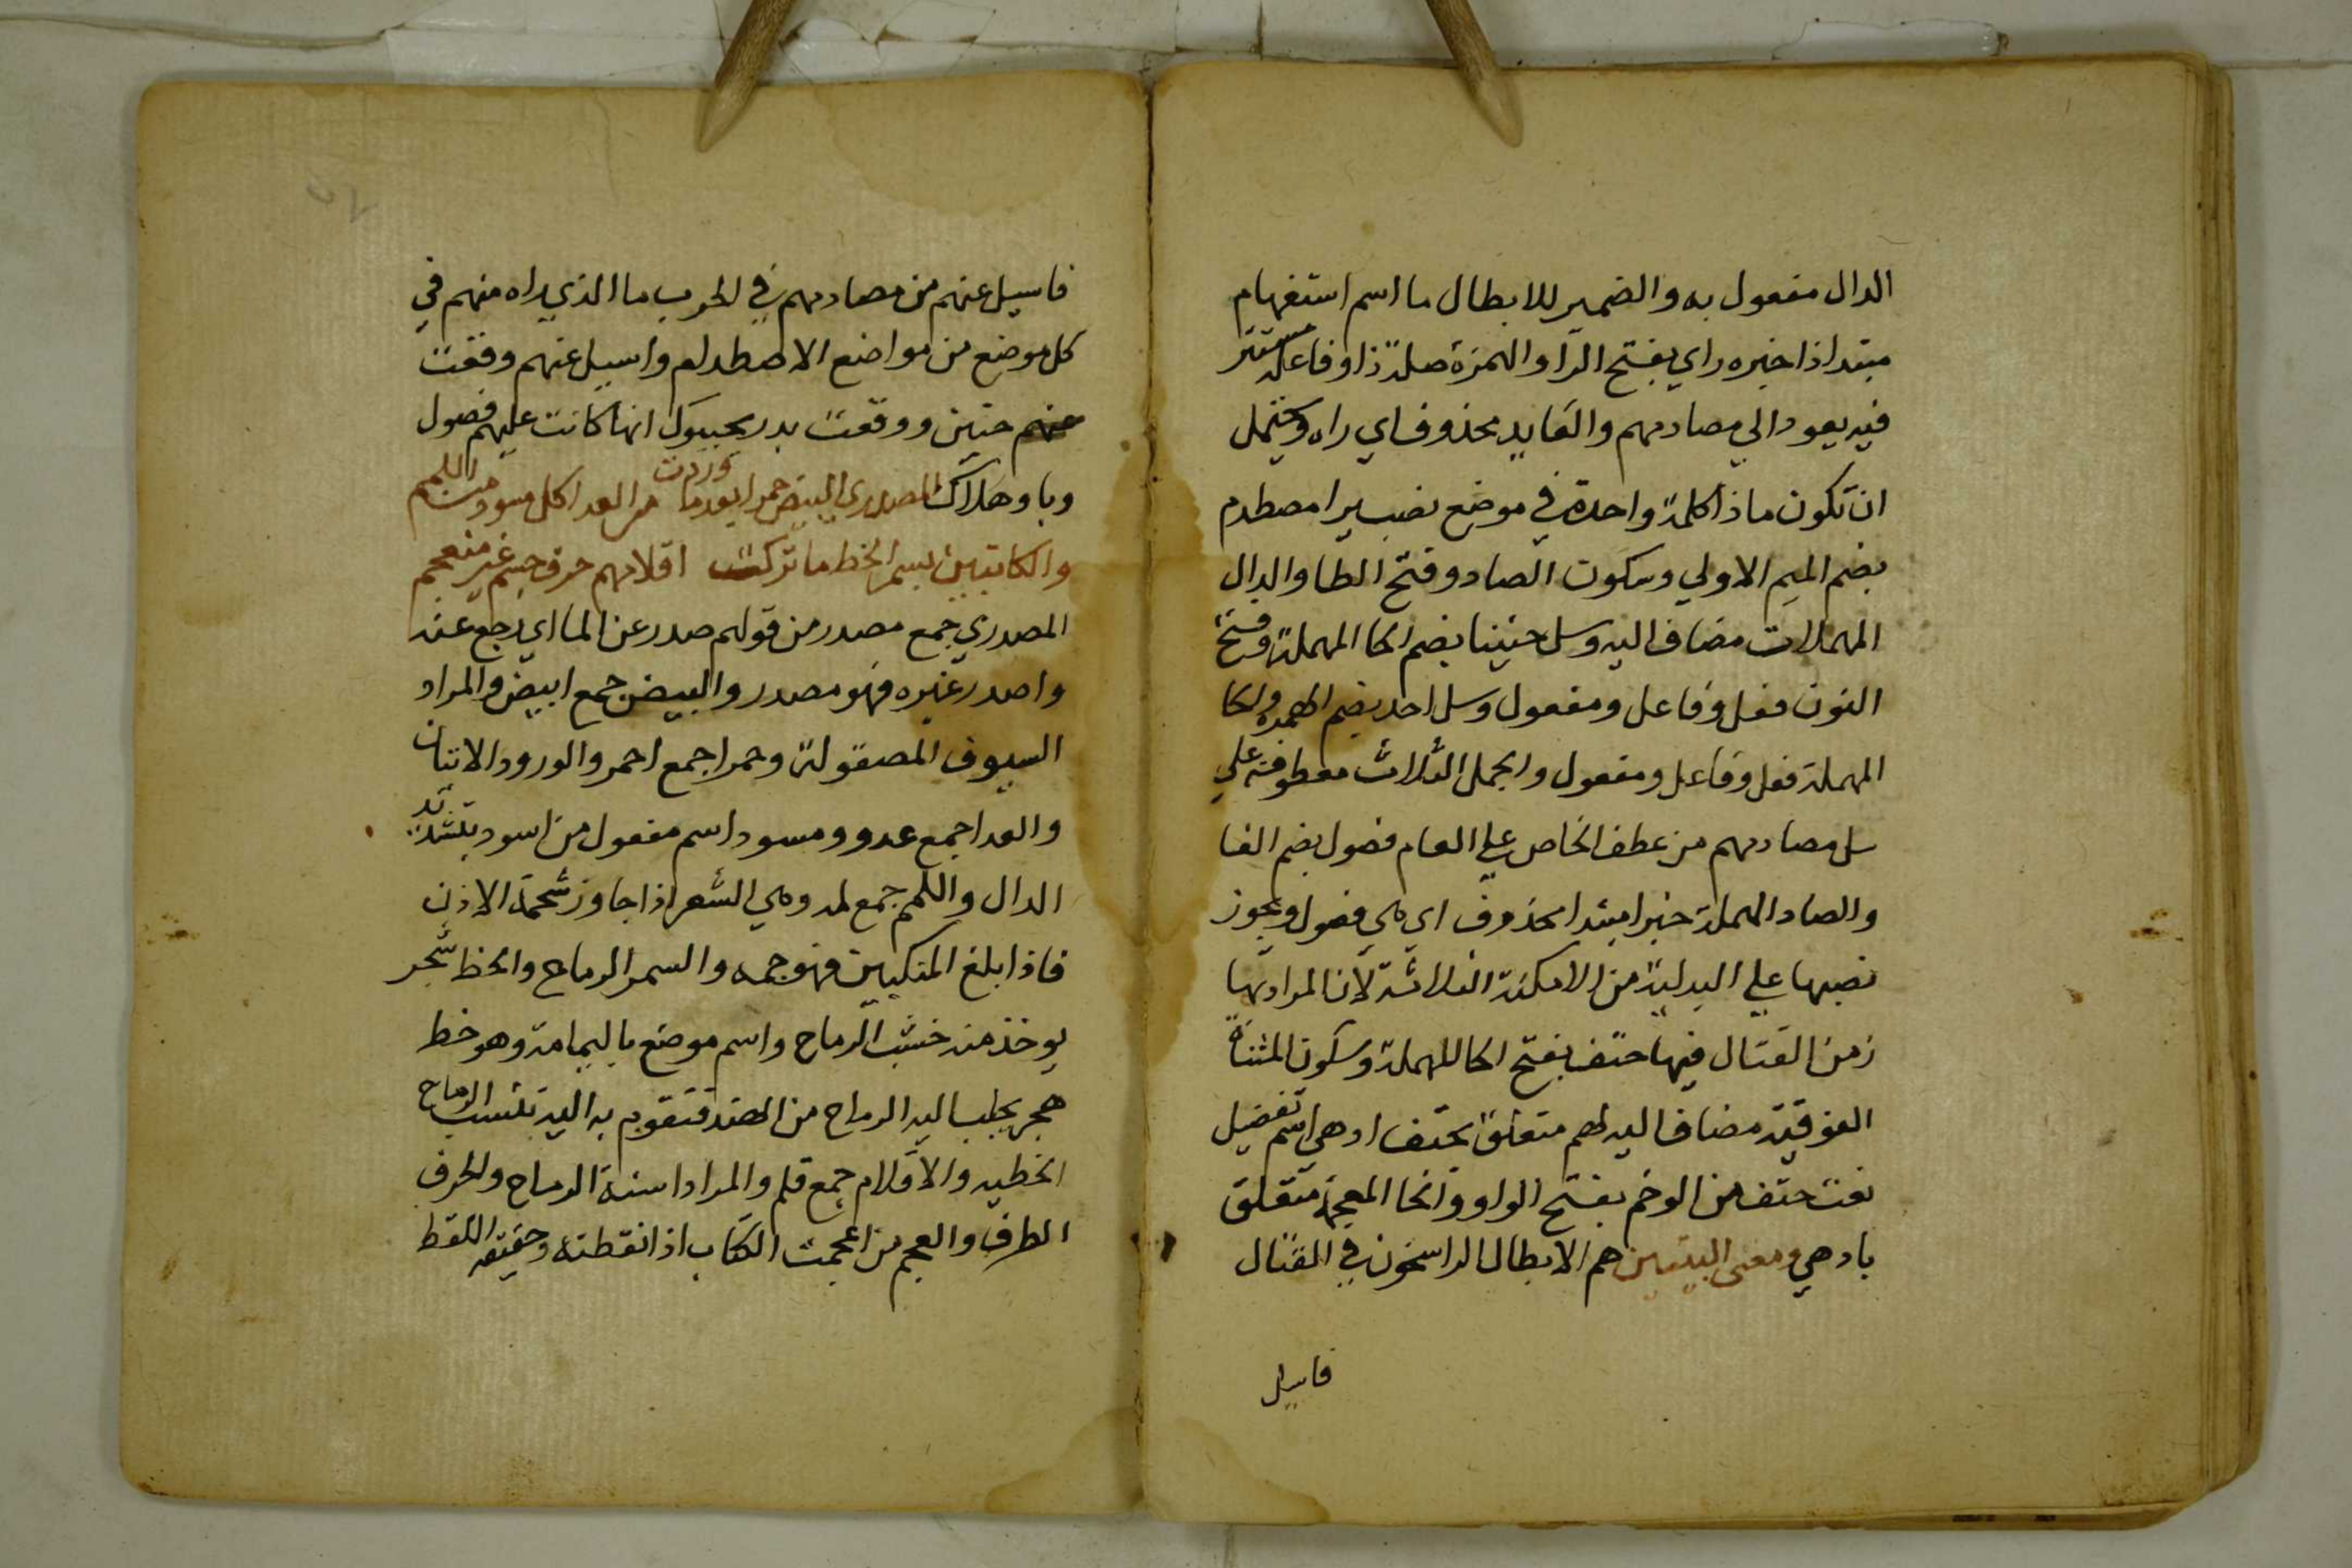 الدال مفعول به والضمير للابطال ما اسم استفهام
مبتدا ذا خبره راي بفتح الرا والهمزة صلة ذا وفاعله مستتر
فيه يعود الي مصادمهم والعايد محذوف اي راه ويحتمل
ان تكون ماذا كلمة واحدة في موضع نصب برا مصطدم
بضم الميم الاولي وسكون الصاد وفتح الطا والدال
المهملات مضاف اليه وسل حنينا بضم الحا المهملة وفتح
النون فعل وفاعل ومفعول وسل احد بضم الهمزة والحا
المهملة فعل وفاعل ومفعول والجمل الثلاث معطوفة علي
سل مصادمهم من عطف الخاص علي العام فصول بضم الفا
والصاد المهملة خبر امبتدا محذوف اي هي فصول ويجوز
نصبها علي البدلية من الامكنة الثلاثة لان المراد بها
زمن القتال فيها حتف بفتح الحا المهملة وسكون المثناة
الفوقية مضاف اليه لهم متعلق بحتف ادهي اسم تفضيل
نعت حتف من الوخم بفتح الواو والخا المعجمة متعلق
بادهي ومعني البيتين هم الابطال الراسخون في القتال
فاسيل
فاسيل عنهم من مصادمهم في الحرب ما الذي راه منهم في
كل موضع من مواضع الاصطدام واسيل عنهم وقعت
حنين ووقعت بدر يجيبوك انها كانت عليهم فصول
وبا وهلاك المصدري البيض حمرا بعد ما وردت من العدا كل مسود من اللمم
والكاتبين بسمر الخط ما تركت اقلامهم حرف جسم غير منعجم
المصدري جمع مصدر من قولهم صدر عن الما اي رجع عنه
واصدر غيره فهو مصدر والبيض جمع ابيض والمراد
السيوف المصقولة وحمرا جمع احمر والورود الاتيان
والعدا جمع عدو ومسود اسم مفعول من اسود بتشديد
الدال واللمم جمع لمه وهي الشعر اذا جاوز شحمة الاذن
فاذا بلغ المنكبين فهو جمه والسمر الرماح والخط شجر
يوخذ منه خشب الرماح واسم موضع باليمامة وهو خط
هجر يجلب اليه الرماح من الهند فتقوم به اليه تنسب الرماح
الخطيه والاقلام جمع قلم والمراد اسنة الرماح والحرف
الطرف والعجم من اعجمت الكتاب اذا نقطته وحقيقه النقط